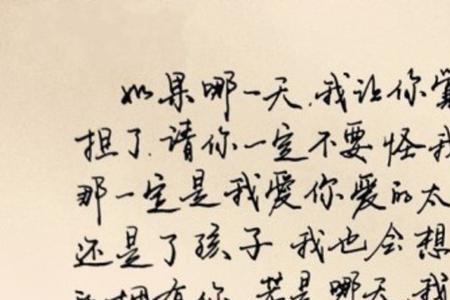 如果哪一天,我让你觉
担了.请你一定不要怪我
那一定是我爱你爱的太
还是了孩子 我也会想
拥有你 若是哪天 我